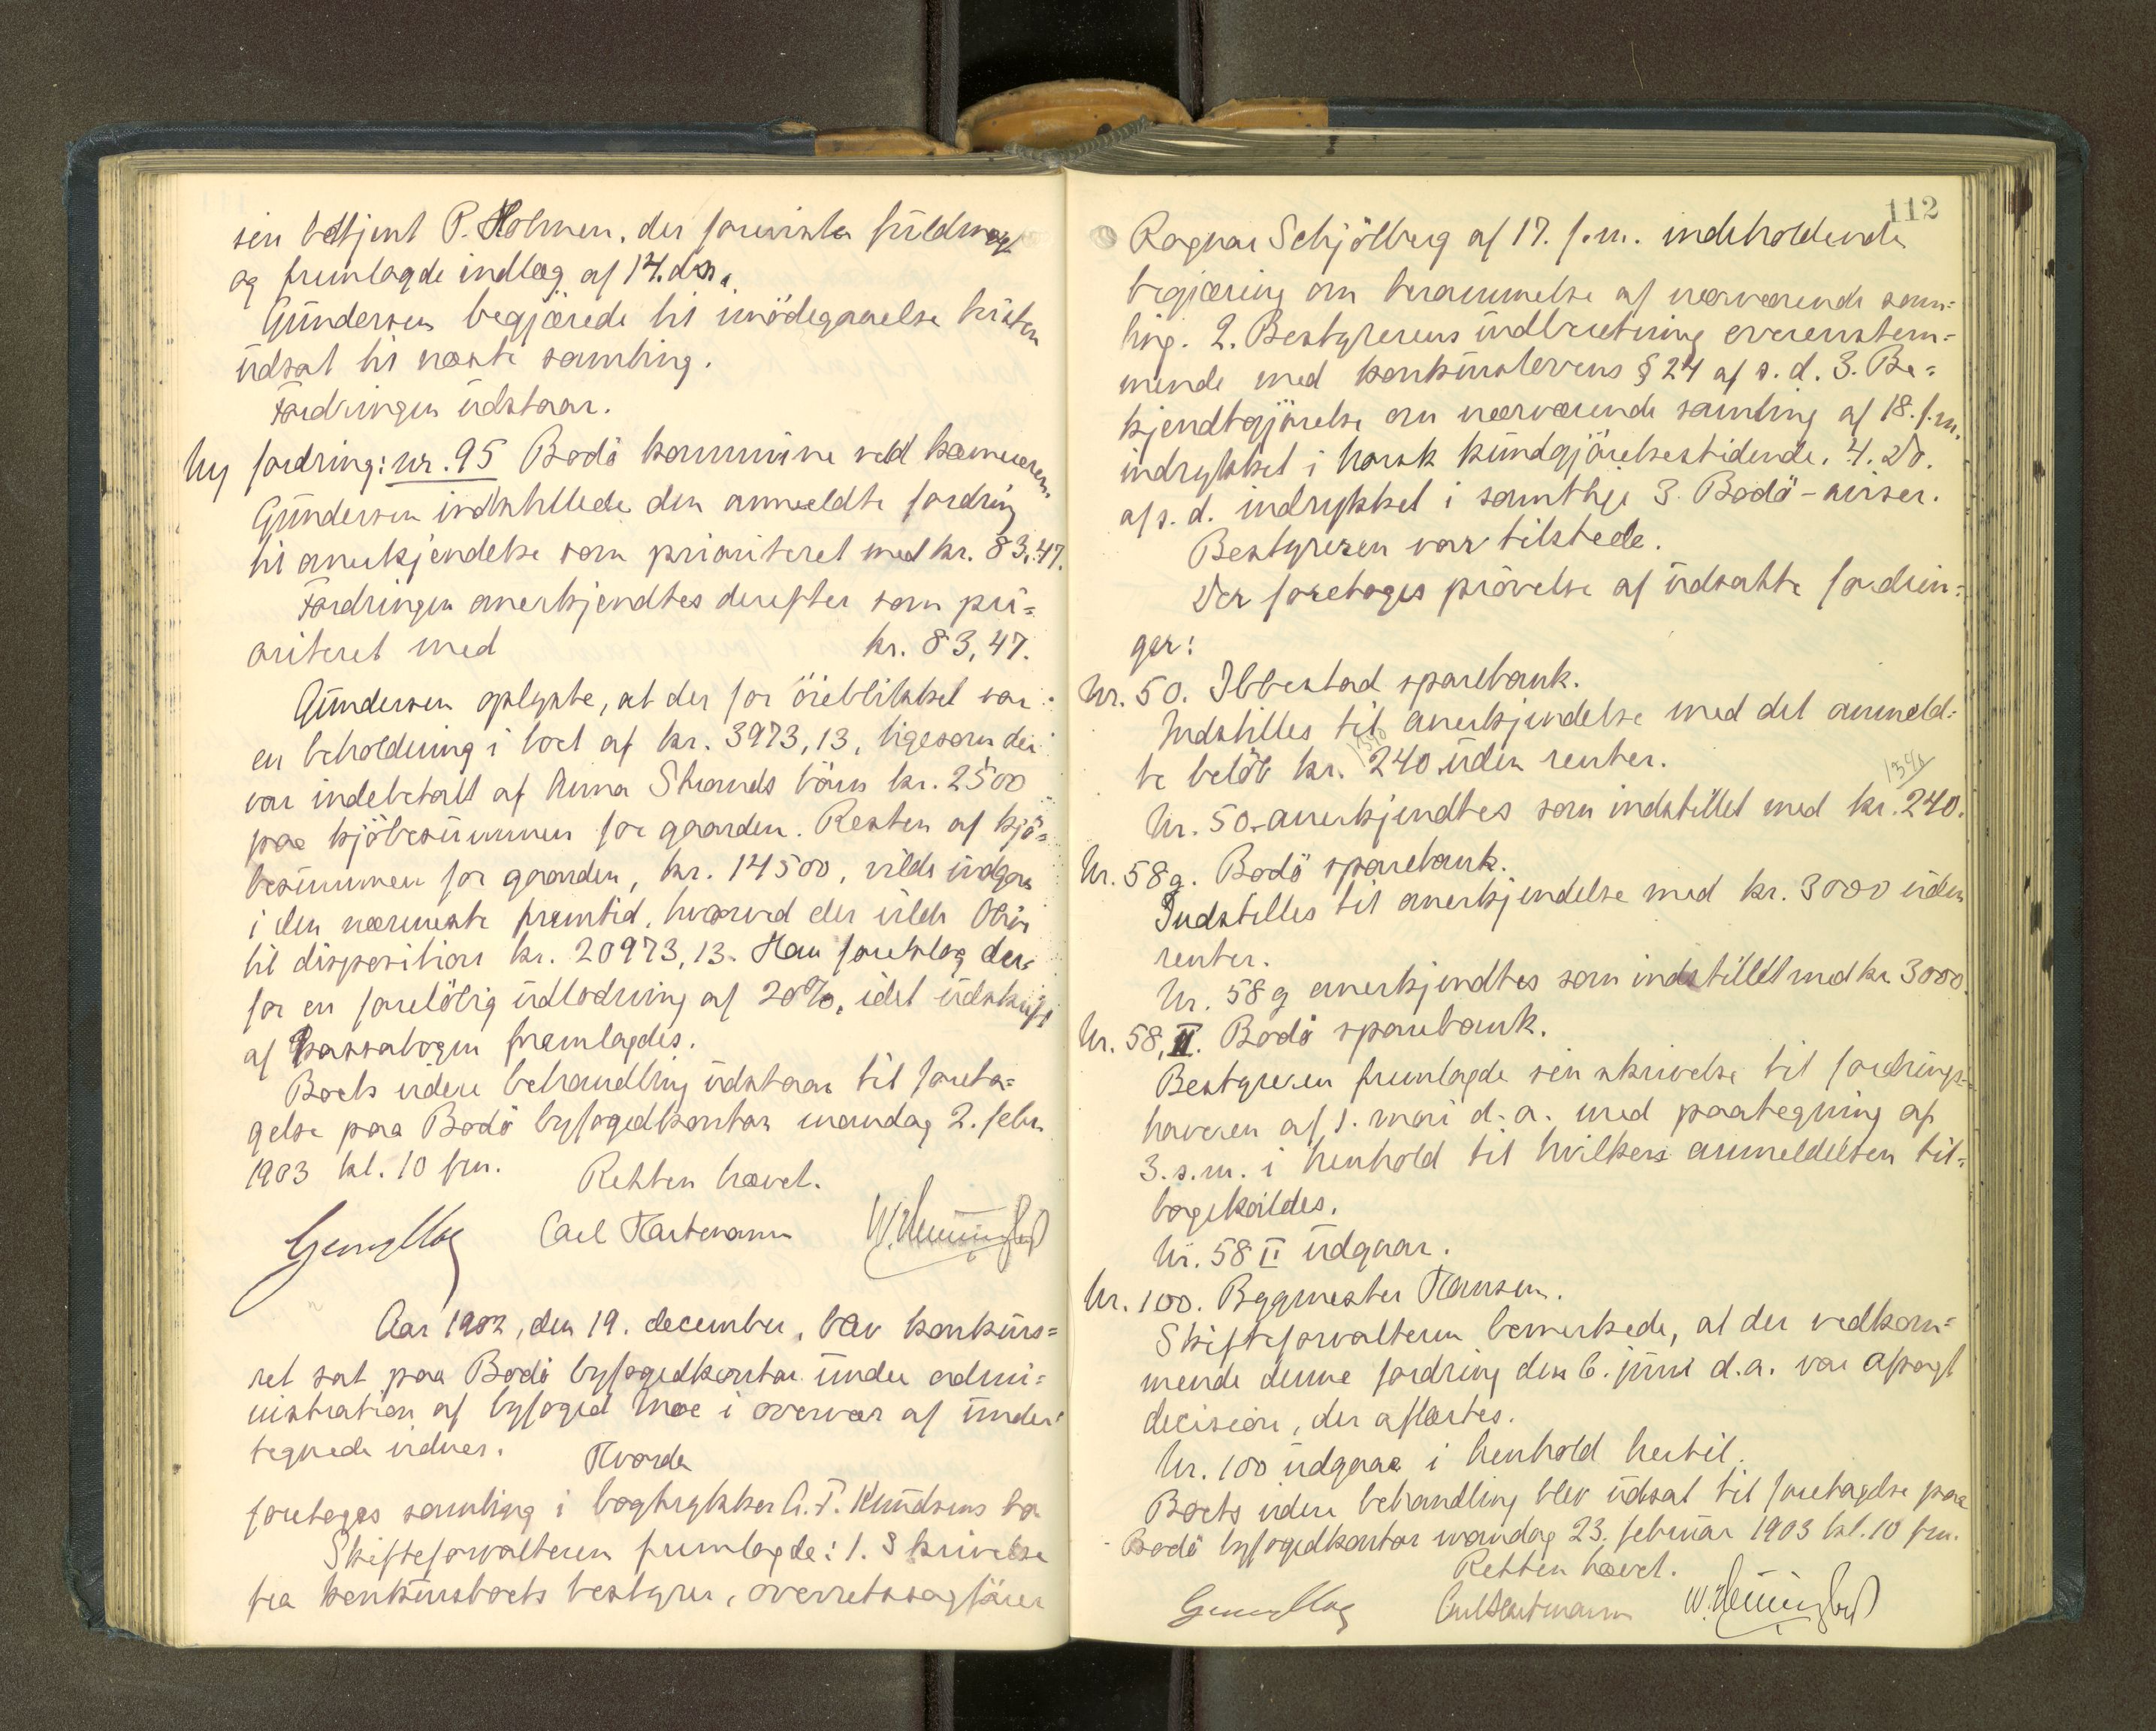 sin betjent P. Holmen, der foreviste fuldmagt
og fremlagde indlæg af 14. ds.
Gundersen begjærede til imødegaaelse tvisten
udsat til næste samling.
Fordringen udstaar.
Ny fordring: nr. 95 Bodö kommune ved kæmneren.
Gundersen indstillede den anmeldte fordring
til anerkjendelse som prioriteret med kr. 83,47.
Fordringen anerkjendtes derefter som pri=
oriteret med kr. 83,47.
Gundersen oplyste, at der for öieblikket var
en beholdning i boet af kr. 3973,13, ligesom der
var indebetalt af Anna Strands börn kr. 2500
paa kjöbesummen for gaarden. Resten af kjö=
besummen for gaarden, kr. 14500, vilde indgaa
i den nærmeste fremtid, hvorved der vilde blive
til disposition kr. 20973,13. Han foreslog der=
for en forelöbig udlodning af 20%, idet udskrift
af kassabogen fremlagdes.
Boets videre behandling udstaar til foreta=
gelse paa Bodö byfogedkontor mandag 2. febr.
1903 kl. 10 fm.
Retten hævet.
Georg Moe Carl Hartmann
Aar 1902, den 19. december, blev konkurs=
ret sat paa Bodö byfogedkontor under admi=
nistration af byfoged Moe i overvær af under=
tegnede vidner.
Hvorda
foretoges samling i bogtrykker A. F. Knudsens bo.
Skifteforvalteren fremlagde: 1. Skrivelse
fra konkursboets bestyrer, overretssagförer
112
Ragnar Schjölberg af 17. f.m. indeholdende
begjæring om berammelse af nærværende sam=
ling. 2. Bestyrerens indberetning overenstem=
mende med konkurslovens § 24 af s. d. 3. Be=
kjendtgjörelse om nærværende samling af 18. f.m.
indrykket i norsk kundgjörelsestidende. 4. Do.
af s. d. indrykket i samtlige 3 Bodö-aviser.
Bestyreren var tilstede.
Der foretoges prövelse af udsatte fordrin=
ger:
Nr. 50. Ibbestad sparebank.
Indstilles til anerkjendelse med det anmeld=
te belöb kr. 240 uden renter.
Nr. 50 anerkjendtes som indstillet med kr. 240.
Nr. 58g. Bodö sparebank.
Indstilles til anerkjendelse med kr. 3000 uden
renter.
Nr. 58 g anerkjendtes som indstillet med kr. 3000.
Nr. 58, II. Bodö sparebank.
Bestyreren fremlagde sin skrivelse til fordrings=
haveren af 1. mai d. a. med paategning af
3. s.m. i henhold til hvilken anmeldelsen til=
bagekaldes.
Nr. 58 II udgaar.
Nr. 100. Bygmester Hansen.
Skifteforvalteren bemerkede, at der vedkom=
mende denne fordring den 6. juni d.a. var afsagt
decision, der aflæstes.
Nr. 100 udgaar i henhold hertil.
Boets videre behandling blev udsat til foretagelse paa
Bodö byfogedkontor mandag 23. februar 1903 kl. 10 fm.
Retten hævet.
Georg Moe Carl Hartmann